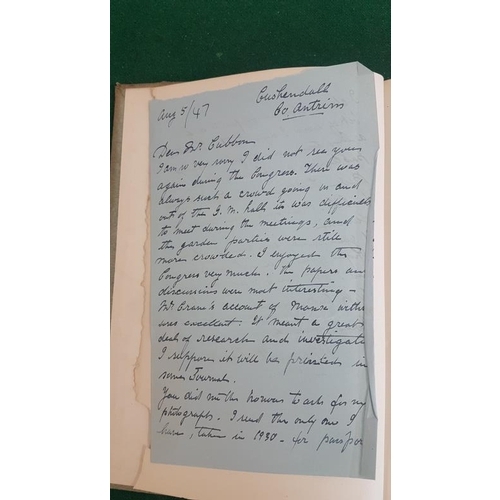 Aug 5/47
Cushendall
Co Antrim
Dear Mr. Cubbon
I am so very sorry I did not see you
again during the Congress. There was
always such a crowd going in and
out of the halls it was difficult
to meet during the meetings, and
the garden parties were still
more crowded. I enjoyed the
Congress very much. The papers and
discussions were most interesting -
Mr account of Manx
was excellent. It meant a great
deal of research and
I suppose it will be printed in
some Journal.
You did me the honour to ask for my
photograph. I send the only one I
have, taken in 1930 - for